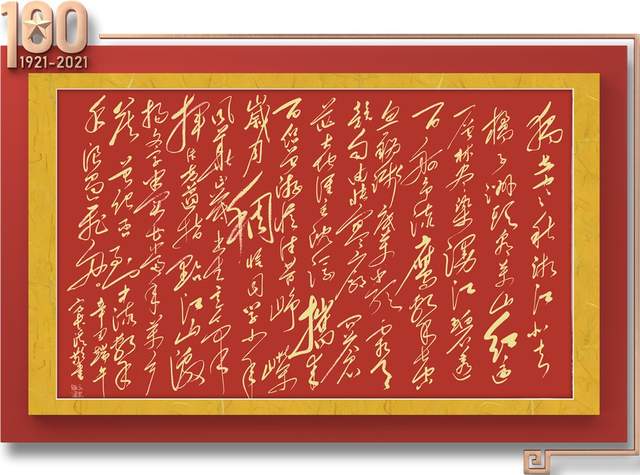 100
1921-2021
独立寒秋湘江北去
橘子洲头看万山红遍
层林尽染漫江碧透
百舸争流鹰击长空
鱼翔浅底万类霜天
竞自由怅寥廓问苍
茫大地谁主沉浮携来
百侣曾游忆往昔峥嵘
岁月稠恰同学少年
风华正茂书生意气
挥斥方遒指点江山激
扬文字粪土当年万户
侯曾记否到中流击
水浪遏飞舟
辛丑端午